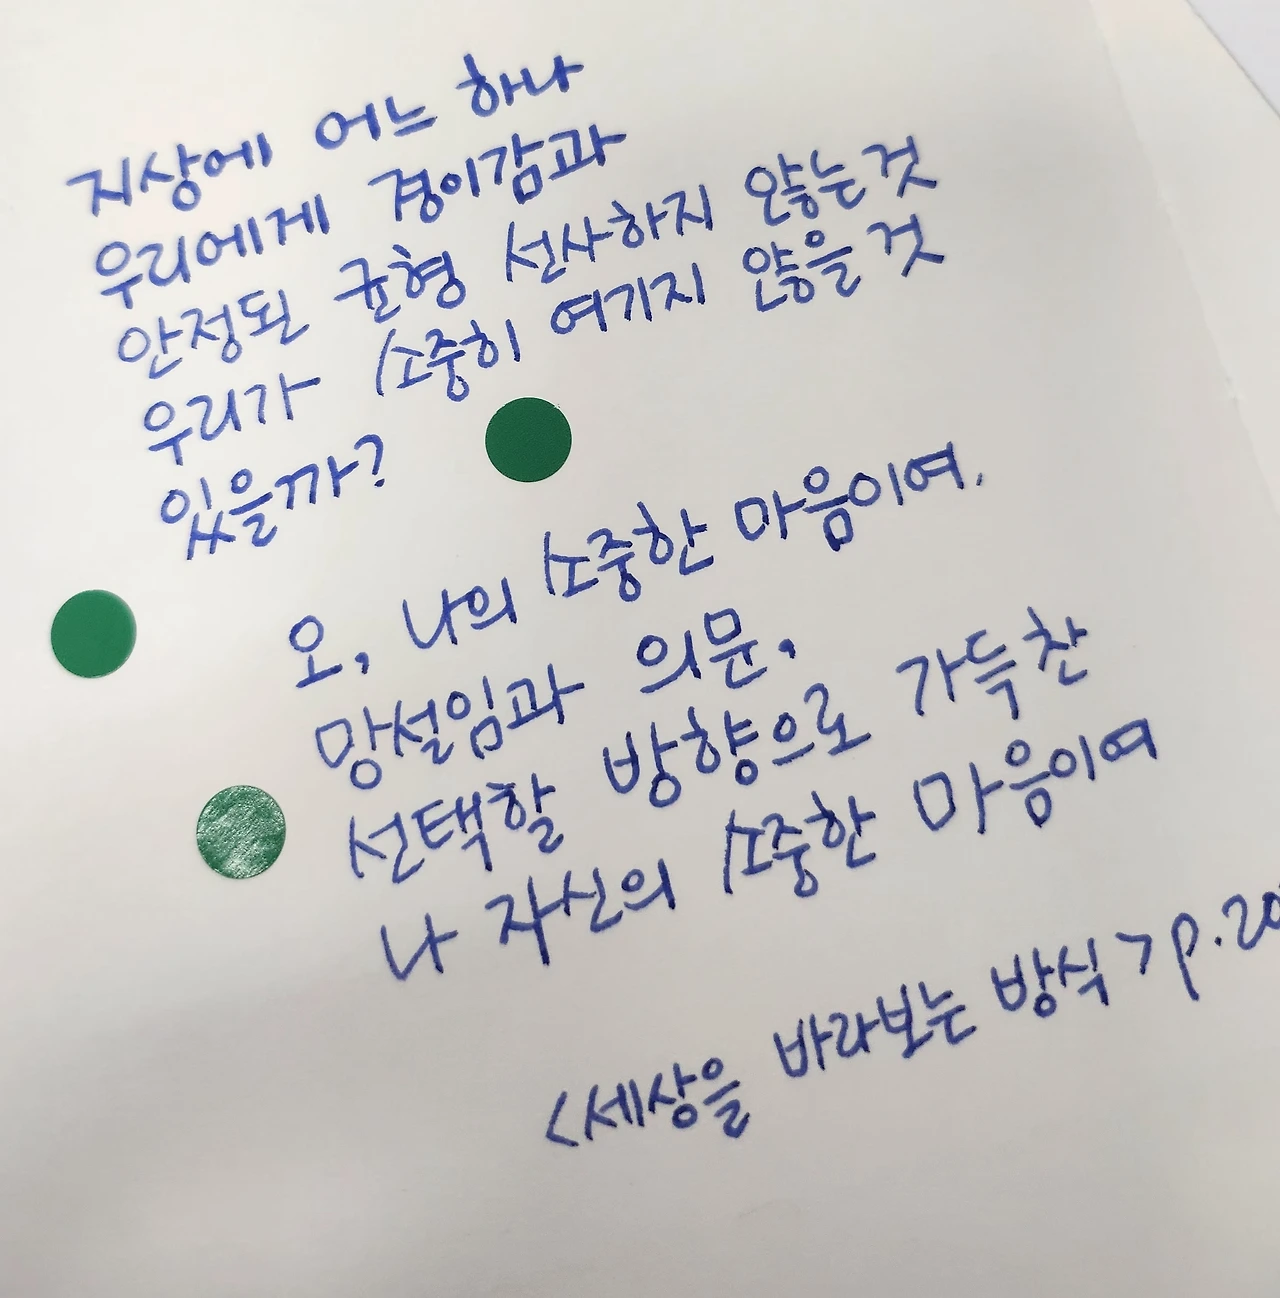 지상에 어느 하나
우리에게 경이감과
안정된 균형 선사하지 않는 것
우리가 소중히 여기지 않을 것
있을까?
오, 나의 소중한 마음이여.
망설임과 의문,
선택할 방향으로 가득 찬
나 자신의 소중한 마음이여
<세상을 바라보는 방식>